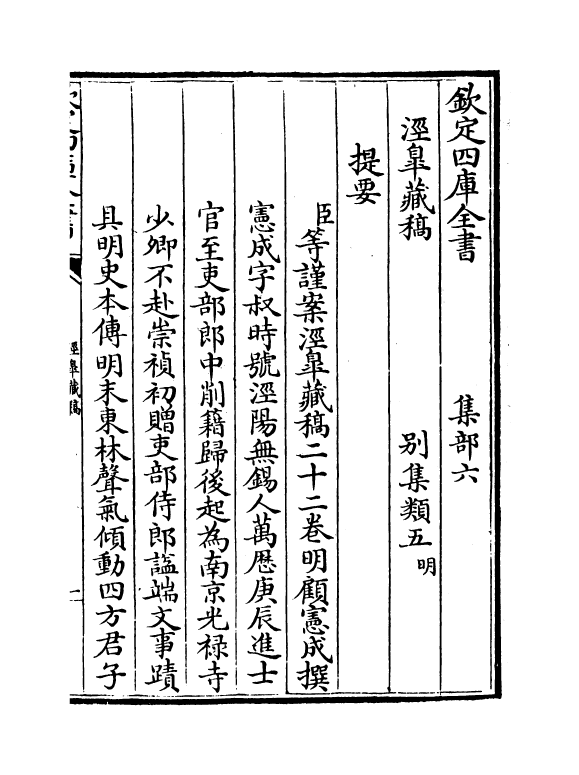 欽定四庫全書 集部六
涇臯藏稿 别集類五明
提要
臣等謹案涇臯藏稿二十二卷明顧憲成撰
憲成字叔時號涇陽無錫人萬厯庚辰進士
官至吏部郎中削籍歸後起為南京光禄寺
少卿不赴崇禎初贈吏部侍郎諡端文事蹟
具明史本傳明末東林聲氣傾動四方君子
涇臯藏稿
一